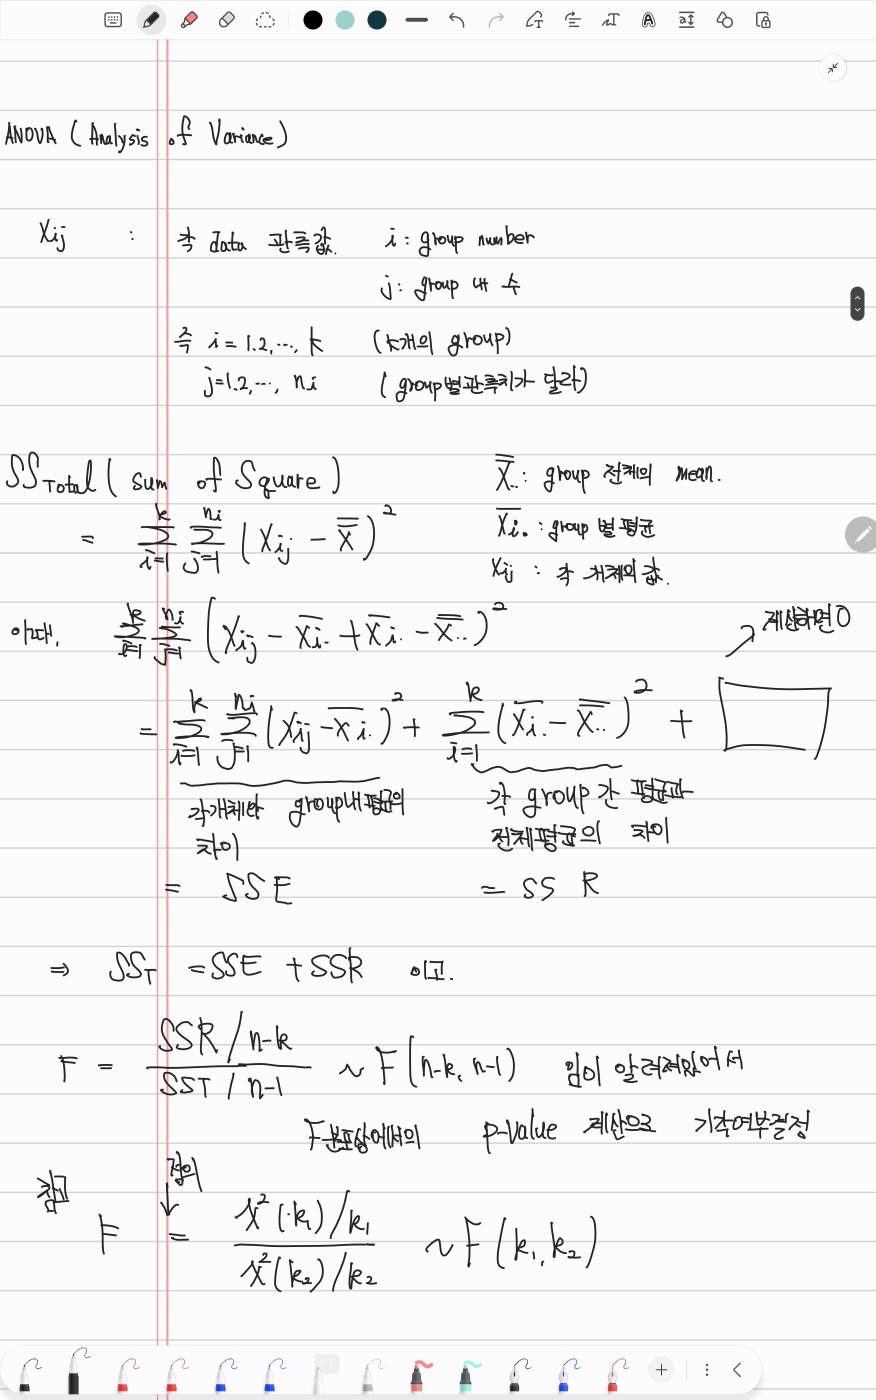 ANOVA (Analysis of Variance)
Xij : 각 data 관측값. i : group number
j : group 내 수
즉 i = 1.2, ..., k (k개의 group)
j=1.2, ..., ni (group별 관측치가 달라)
SS Total ( Sum of Square ) X̿.. : group 전체의 mean.
= Σ(i=1→k) Σ(j=1→ni) (Xij - X̿)² X̄i. : group 별 평균
Xij : 각 개체의 값.
이때, Σ(i=1→k) Σ(j=1→ni) (Xij - X̄i. + X̄i. - X̿..)² ↗ 계산하면 0
= Σ(i=1→k) Σ(j=1→ni) (Xij - X̄i.)² + Σ(i=1→k) (X̄i. - X̿..)² + □
각 개체와 group내 평균의 각 group 간 평균과
차이 전체평균의 차이
= SSE = SS R
⇒ SST = SSE + SSR 이고.
F = (SSR / n-k) / (SST / n-1) ~ F(n-k, n-1) 임이 알려져있어서
F분포상에서의 p-value 계산으로 기각여부결정
참고 정의 ↓
F = (χ²(k₁)/k₁) / (χ²(k₂)/k₂) ~ F(k₁, k₂)